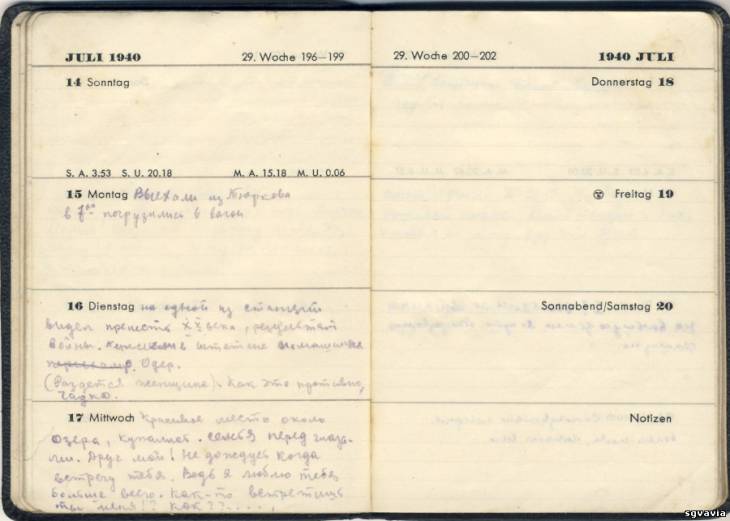 JULI 1940 29. Woche 196—199
14 Sonntag
S. A. 3.53 S. U. 20.18 M. A. 15.18 M. U. 0.06
15 Montag Выехали из Тюркова
в 7⁰⁰ погрузились в вагон
16 Dienstag на одной из станций
видел прелесть XX века, результат
войны. в Штетине
Одер.
(Раздется женщине). Как это противно,
гадко.
17 Mittwoch Красивое место около
озера, купались. семья перед глаза-
ми. Друг мой! Не дождусь когда
встречу тебя. Ведь я люблю тебя
больше всего. Как-то встретишь
ты меня!? Как??....,
29. Woche 200—202 1940 JULI
Donnerstag 18
Freitag 19
Sonnabend/Samstag 20
Notizen
sgvavia